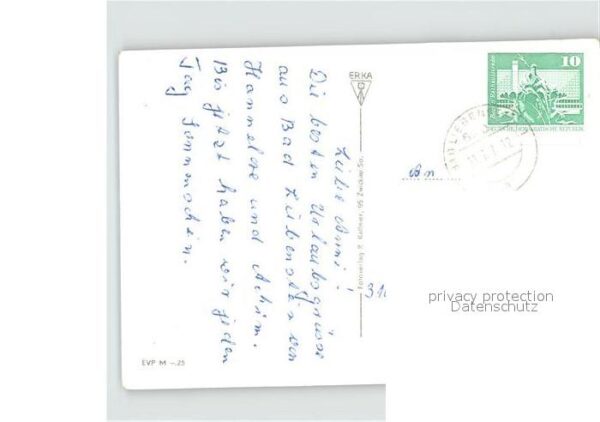 Liebe Anni!
Die besten Urlaubsgrüsse
aus Bad Liebenstein von
Hannelore und Achim.
Bis jetzt haben wir jeden
Tag Sonnenschein.
ERKA
Fotoverlag R. Kallmer, 95 Zwickau/Sa.
EVP M –.25
10
DEUTSCHE DEMOKRATISCHE REPUBLIK
An
privacy protection
Datenschutz